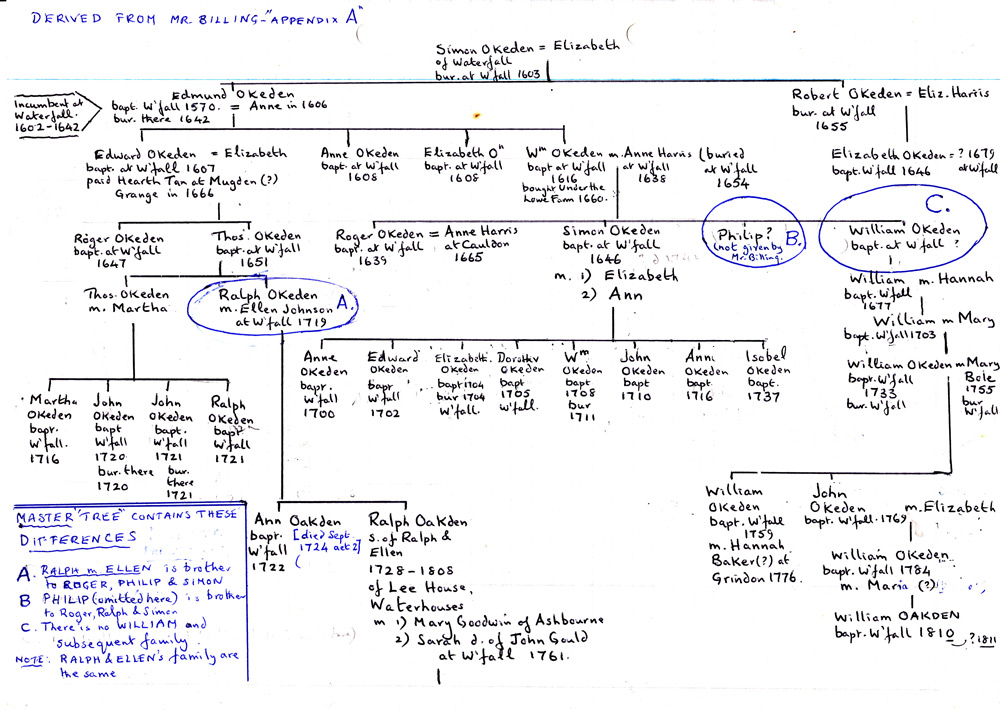 DERIVED FROM MR. BILLING-"APPENDIX A"
Simon OKeden = Elizabeth
of Waterfall
bur. at W'fall 1603
Incumbent at
Waterfall.
1602-1642
Edmund OKeden
bapt. W'fall 1570. = Anne in 1606
bur. there 1642
Robert OKeden = Eliz. Harris
bur. at W'fall
1655
Edward OKeden = Elizabeth
bapt. at W'fall 1607
paid Hearth Tan at Mugden (?)
Grange in 1666
Anne OKeden
bapt. at W'fall
1608
Elizabeth On
bapt. at W'fall
1608
Wm OKeden m. Anne Harris (buried
bapt. at W'fall at W'fall at W'fall
1616 1638 1654
bought Under the
Lowe Farm 1660.
Elizabeth OKeden = ? 1679
bapt. W'fall 1646 at W'fall
Roger OKeden
bapt. at W'fall
1647
Thos. OKeden
bapt. at W'fall
1651
Roger OKeden = Anne Harris
bapt. at W'fall at Cauldon
1639 1665
Simon OKeden
bapt. at W'fall
1646
m. 1) Elizabeth
2) Ann
Philip?
(not given by
Mr. Billing.
B.
C.
William OKeden
bapt. at W'fall ?
Thos. OKeden
m. Martha
Ralph OKeden
m. Ellen Johnson
at W'fall 1719
A.
William m. Hannah
bapt. W'fall
1677
William m Mary
bapt. W'fall 1703
William OKeden m Mary
bapt. W'fall Bole
1733 1755
bur. W'fall bur W'fall
Anne
OKeden
bapt.
W'fall
1700
Edward
OKeden
bapt
W'fall
1702
Elizabeth.
OKeden
bapt 1704
bur 1704
W'fall.
Dorothy
OKeden
bapt
1705
W'fall.
Wm
OKeden
bapt
1708
bur
1711
John
OKeden
bapt
1710
Anni
OKeden
bapt
1716
Isobel
OKeden
bapt.
1737
Martha
OKeden
bapt.
W'fall.
1716
John
OKeden
bapt
W'fall
1720
bur. there
1720
John
OKeden
bapt.
W'fall
1721
bur.
there
1721
Ralph
OKeden
bapt
W'fall
1721
William
OKeden
bapt. W'fall
1759
m. Hannah
Baker(?) at
Grindon 1776.
John
OKeden m. Elizabeth
bapt. W'fall. 1769
William OKeden
bapt. W'fall 1784
m. Maria (?)
William OAKDEN
bapt. W'fall 1810, ? 1811
Ann Oakden
bapt. [died Sept.
W'fall 1724 aet 2]
1722 (
Ralph Oakden
s. of Ralph &
Ellen
1728-1808
of Lee House,
Waterhouses
m 1) Mary Goodwin of Ashbourne
2) Sarah d. of John Gould
at W'fall 1761.
MASTER "TREE" CONTAINS THESE
DIFFERENCES
A. RALPH m ELLEN is brother
to ROGER, PHILIP & SIMON
B PHILIP (omitted here) is brother
to Roger, Ralph & Simon
C. There is no WILLIAM and
subsequent family.
NOTE: RALPH & ELLEN'S family are
the same